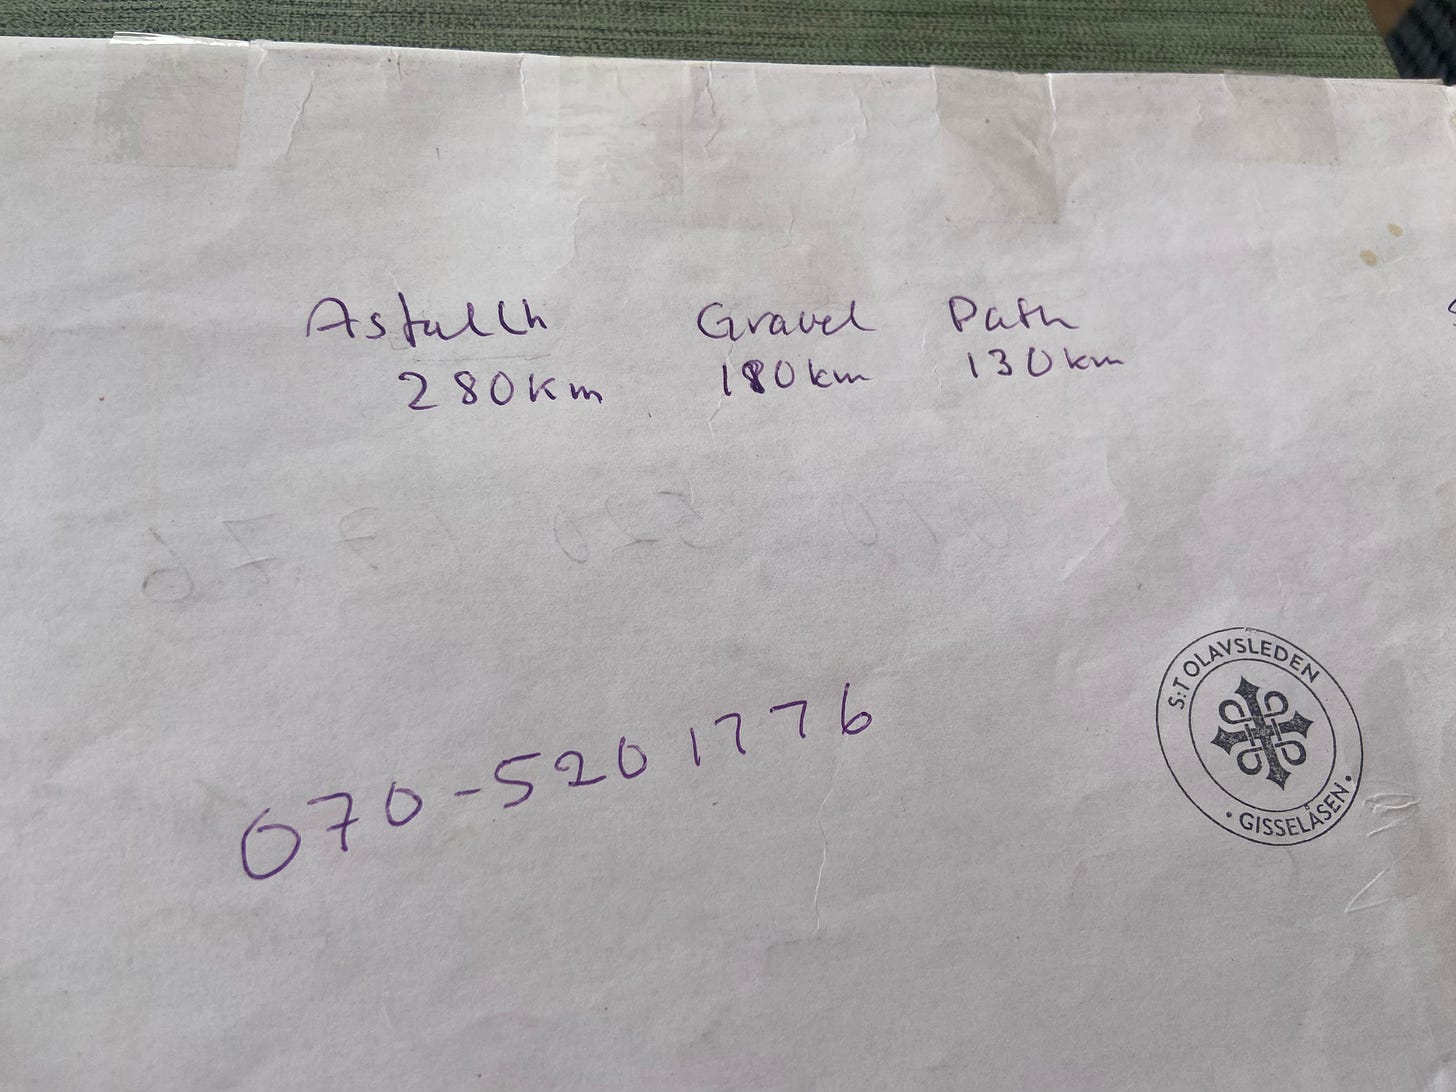 Asfallh Gravel Path
280km 180km 130km
070-5201776
S:T OLAVSLEDEN
• GISSELÅSEN •